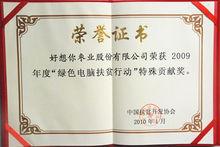 荣誉证书
好想你枣业股份有限公司荣获 2009
年度“绿色电脑扶贫行动”特殊贡献奖。
中国扶贫开发协会
2010年1月